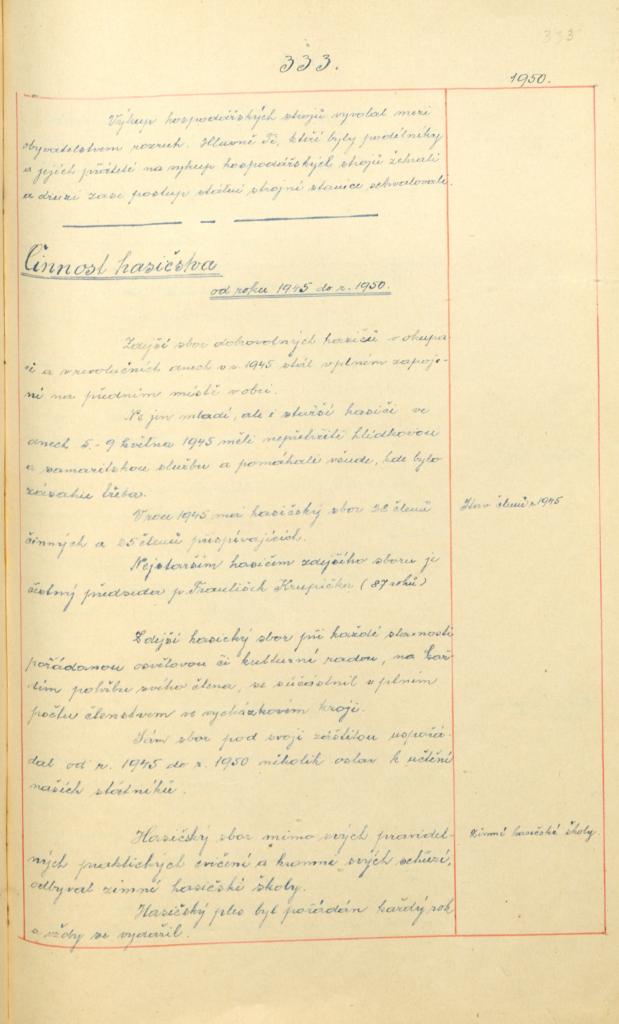 333
333.
1950.
Výkup hospodářských strojů vyvolal mezi
obyvatelstvem rozruch. Hlavně Ti, kteří byly podílníky
a jejich přátelé na výkup hospodářských strojů žehrali
a druzí zase postup státní strojní stanice schvalovali.
Činnost hasičstva
od roku 1945 do r. 1950.
Zdejší sbor dobrovolných hasičů v okupa-
ci a v revolučních dnech v r. 1945 stál v plném zapoje-
ní na předním místě v obci.
Ne jen mladí, ale i starší hasiči ve
dnech 5.-9 května 1945 měli nepřetržitě hlídkovou
a samaritskou službu a pomáhali všude, kde bylo
zásahu třeba.
V roce 1945 měl hasičský sbor 28 členů
Stav členů r. 1945
činných a 25 členů přispívajících.
Nejstarším hasičem zdejšího sboru je
čestný předseda p. František Krupička (87 roků)
Zdejší hasický sbor při každé slavnosti
pořádanou osvětovou či kulturní radou, na kaž-
dém pohřbu svého člena, se súčástnil v plném
počtu členstvem ve vycházkovém kroji.
Sám sbor pod svojí záštitou uspořá-
dal od r. 1945 do r. 1950 několik oslav k uctění
našich státníků.
Hasičský sbor mimo svých pravidel-
Zimní hasičské školy.
ných praktických cvičení a kromně svých schůzí,
odbýval zimní hasičské školy.
Hasičský ples byl pořádán každý rok
a vždy se vydařil.